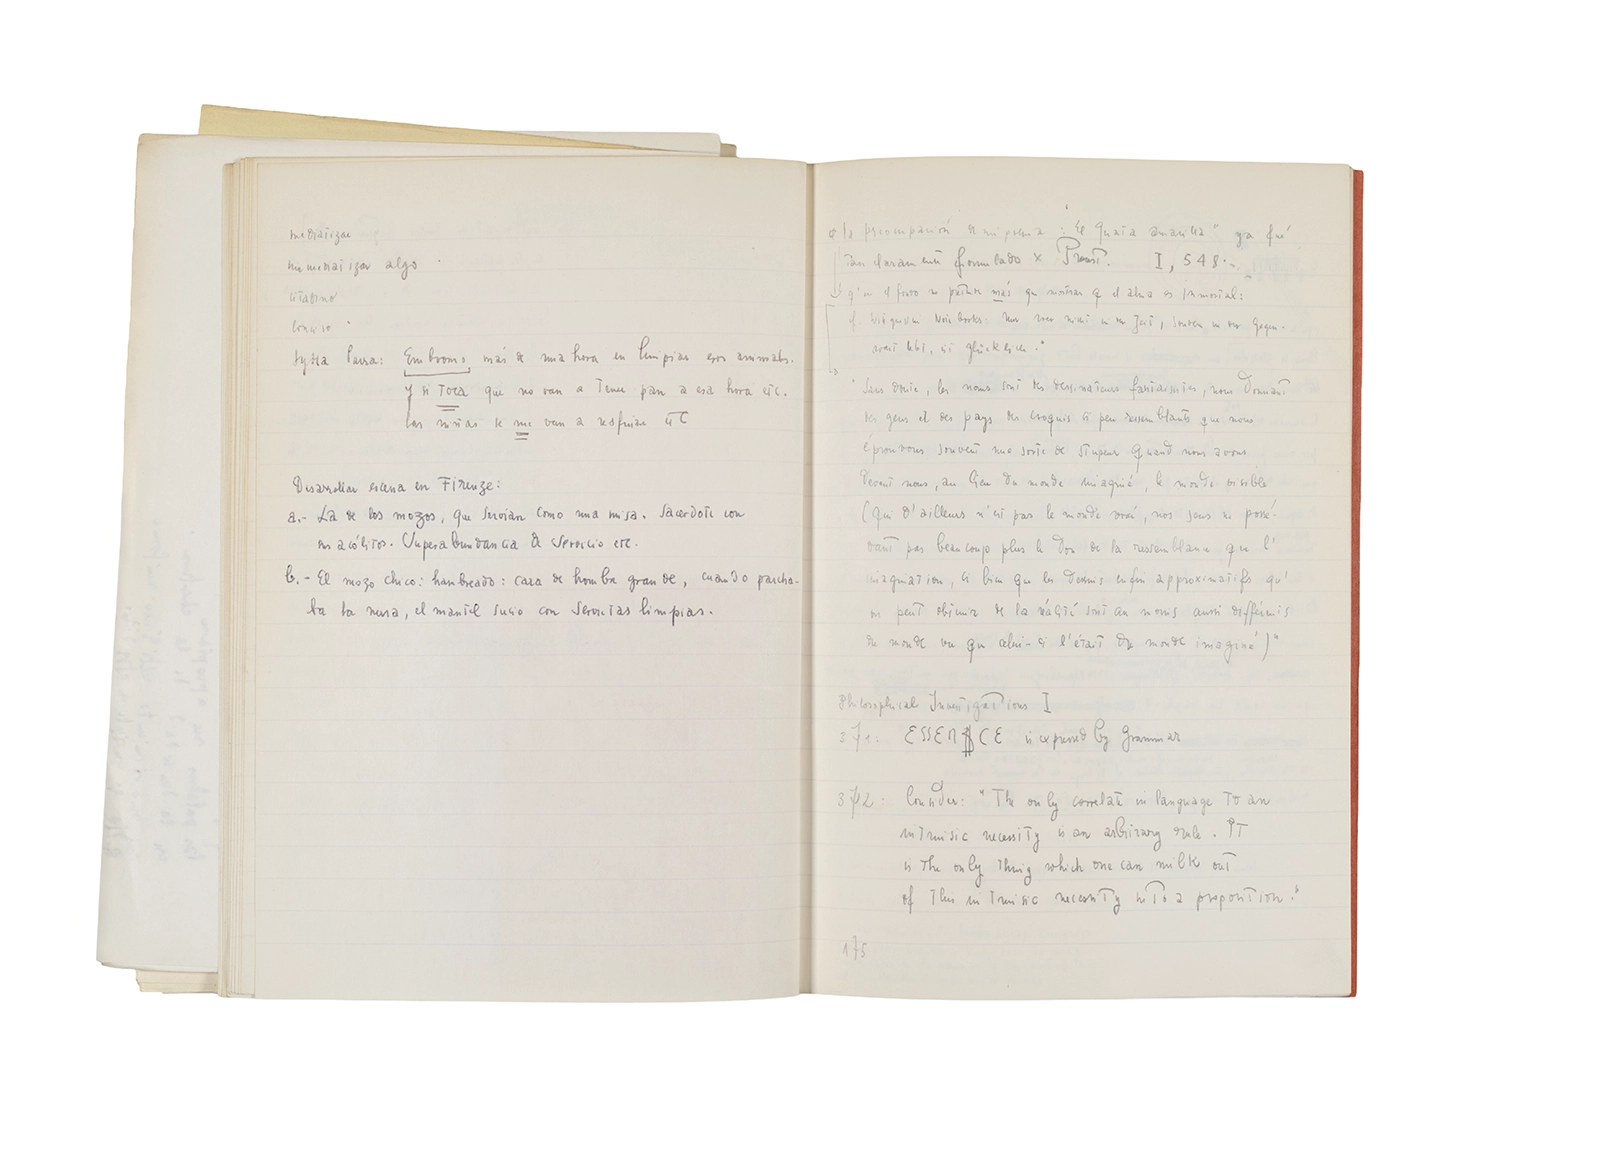 mediatizar
inmediatizar algo
citadino
conciso
Lydia Parra: Embromo más de una hora en limpiar esos animals.
y si toca que no van a tener pan a esa hora etc.
las niñas se me van a resfriar etc
Desarrollar escena en Firenze:
a.- La de los mozos, que servían como una misa. Sacerdote con
sus acólitos. Superabundancia de servicio etc.
b.- El mozo chico: hambreado: cara de hombre grande, cuando parcha-
ba la mesa, el mantel sucio con servilletas limpias.
la preocupación de mi poema : El Quata amarilla" ya fué
tan claramente formulado x Proust. I, 548
q' en el fondo no pretende más que mostrar q' el alma es inmortal:
cf. Wittgenstein Notebooks. Nur wer nicht in der Zeit, sondern in der Gegen-
wart lebt, ist glücklich."
"Sans doute, les noms sont des dessinateurs fantaisistes, nous donnant
des gens et des pays des croquis si peu ressemblants que nous
éprouvons souvent une sorte de stupeur quand nous avons
devant nous, au lieu du monde imaginé, le monde visible
(qui d'ailleurs n'est pas le monde vrai, nos sens ne possé-
dant pas beaucoup plus le don de la ressemblance que l'
imagination, si bien que les dessins enfin approximatifs qu'
on peut obtenir de la réalité sont au moins aussi différents
du monde vu que celui-ci l'était du monde imaginé)"
Philosophical Investigations I
371: ESSENCE is expressed by Grammar
372: Consider: "The only correlate in language to an
intrinsic necessity is an arbitrary rule. It
is the only thing which one can milk out
of this intrinsic necessity into a proposition."
175